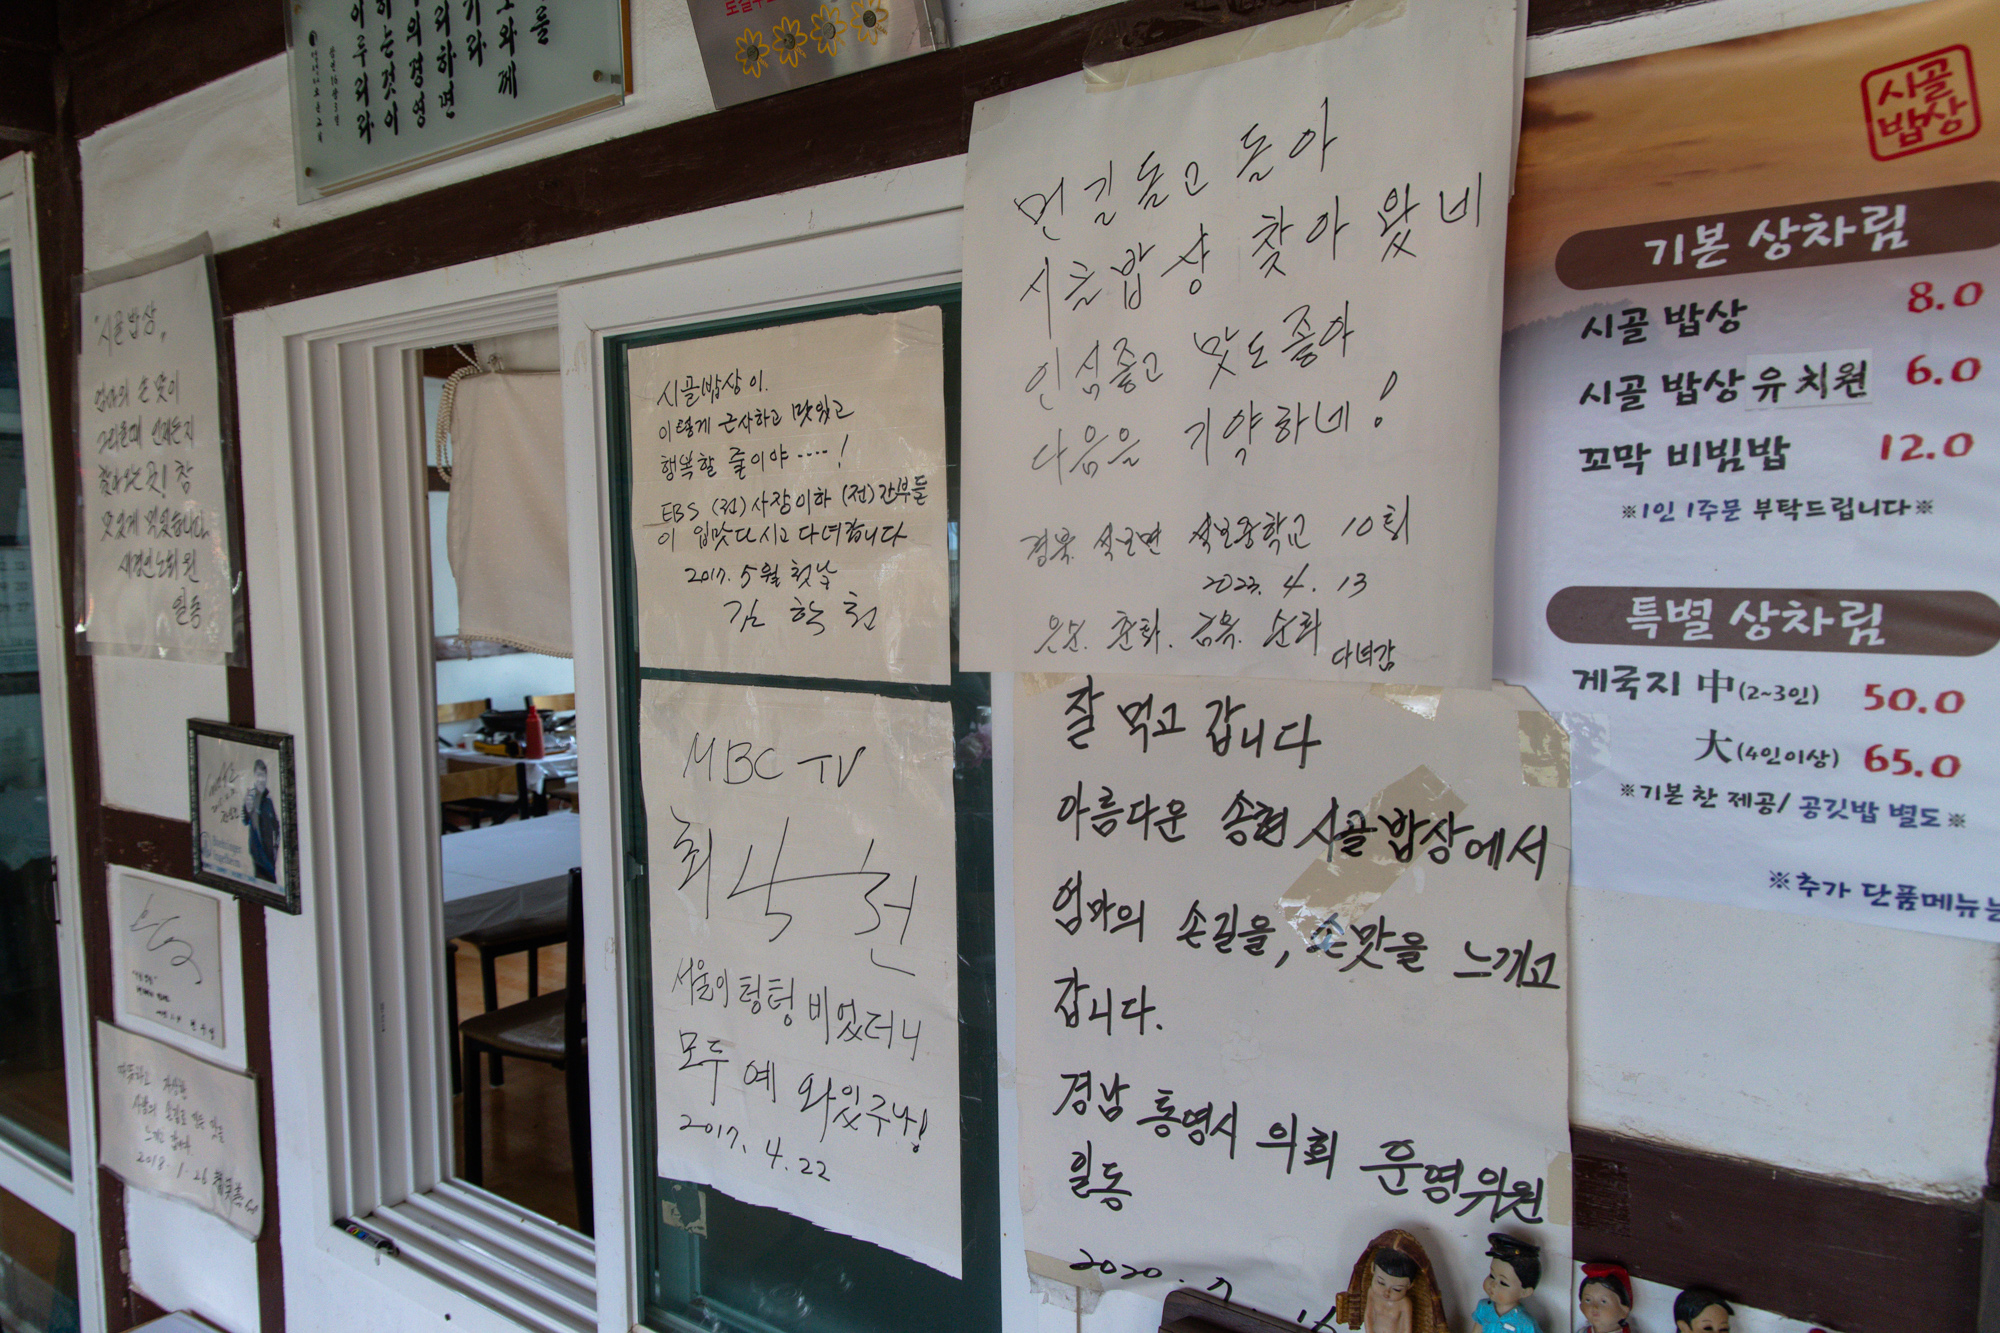 를
도와께
기라
리하면
의경영
하는것이
이루리라
"시골밥상"
엄마의 손맛이
그리울때 언제든지
찾아오는 곳! 참
맛있게 먹었습니다.
일동
시골밥상이.
이렇게 근사하고 맛있고
행복할 줄이야····!
EBS (전)사장이하 (전)간부들
이 입맛다시고 다녀갑니다
2017. 5월 첫날
김 학 천
MBC TV
최 낙 천
서울이 텅텅 비었더니
모두 예 와있구나!
2017. 4. 22
2018. 1. 26
먼길돌고 돌아
시골밥상 찾아왔네
인심좋고 맛도좋아
다음을 기약하네!
경북. 석보면 석보중학교 10회
2023. 4. 13
춘화. 금옥. 순화
다녀감
잘 먹고 갑니다
아름다운 송현 시골밥상에서
엄마의 손길을, 손맛을 느끼고
갑니다.
경남 통영시 의회 운영위원
일동
2020. 7. 16
시골
밥상
기본 상차림
시골 밥상 8.0
시골 밥상 유치원 6.0
꼬막 비빔밥 12.0
※1인 1주문 부탁드립니다※
특별 상차림
게국지 中(2~3인) 50.0
大(4인이상) 65.0
※기본 찬 제공/ 공깃밥 별도※
※추가 단품메뉴는